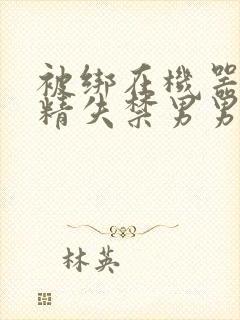 被绑在機器
精失禁男男
林英